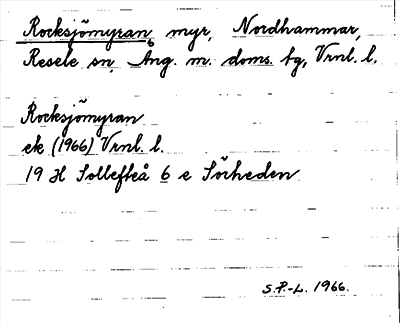 Rocksjömyran, myr, Nordhammar,
Resele sn, Ång. m. doms. fg, Vrnl. l.
Rocksjömyran
ek (1966) Vrnl. l.
19 H Sollefteå 6 e Sörheden
S.P.-L. 1966.